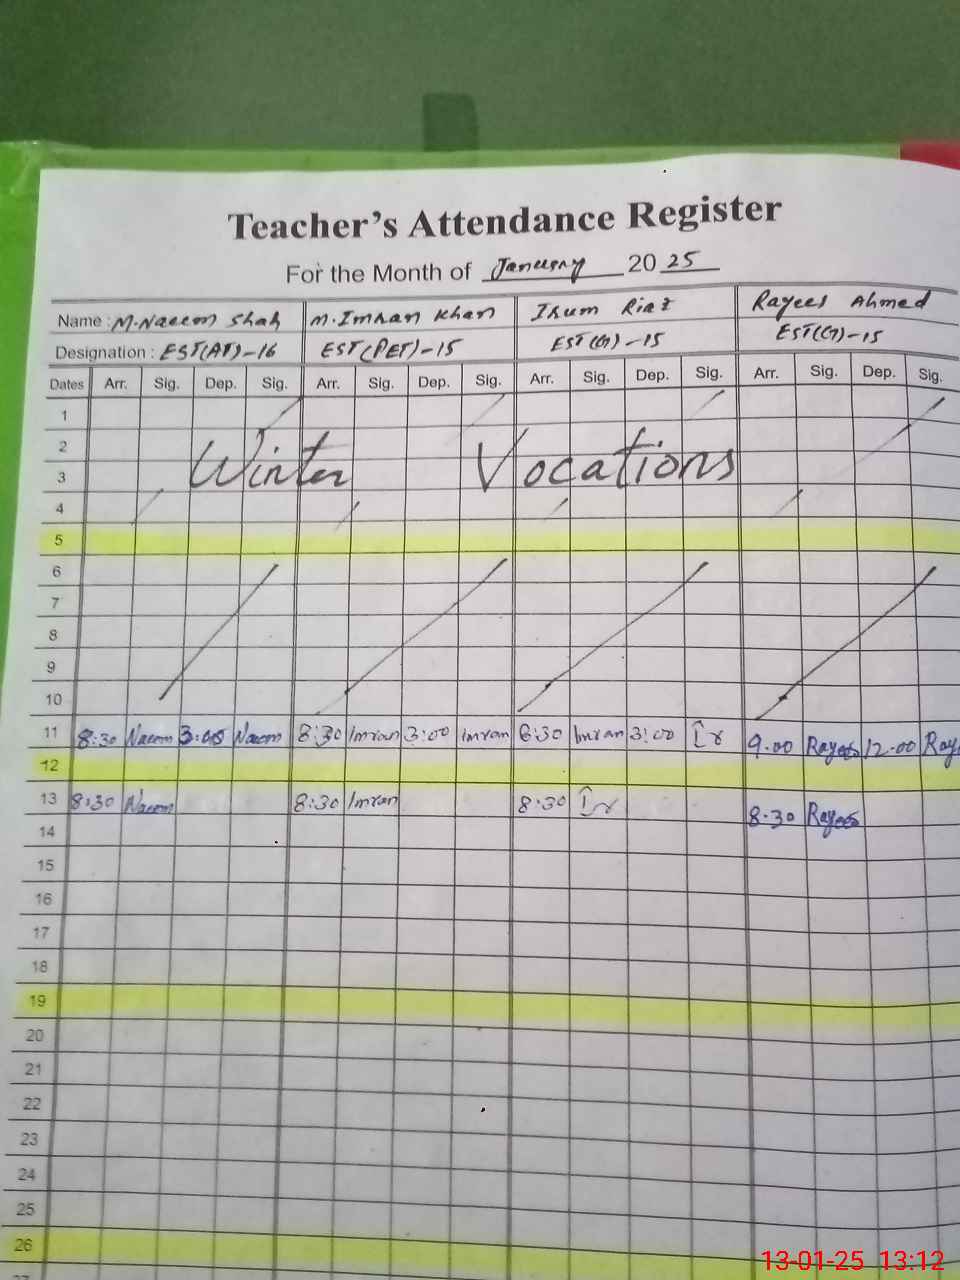 Teacher's Attendance Register
For the Month of January 2025
Name : M.Naeem Shah M.Imran Khan Irum Riaz Rayees Ahmed
Designation : EST(AT)-16 EST(PET)-15 EST(G)-15 EST(G)-15
Dates Arr. Sig. Dep. Sig. Arr. Sig. Dep. Sig. Arr. Sig. Dep. Sig. Arr. Sig. Dep. Sig.
1
2
Winter Vocations
3
4
5
6
7
8
9
10
11 8:30 Naeem 3:00 Naeem 8:30 Imran 3:00 Imran 8:30 Imran 3:00 9.00 Rayees 12.00 Ray
12
13 8:30 Naeem 8:30 Imran 8:30 8.30 Rayees
14
15
16
17
18
19
20
21
22
23
24
25
26
27
13-01-25 13:12